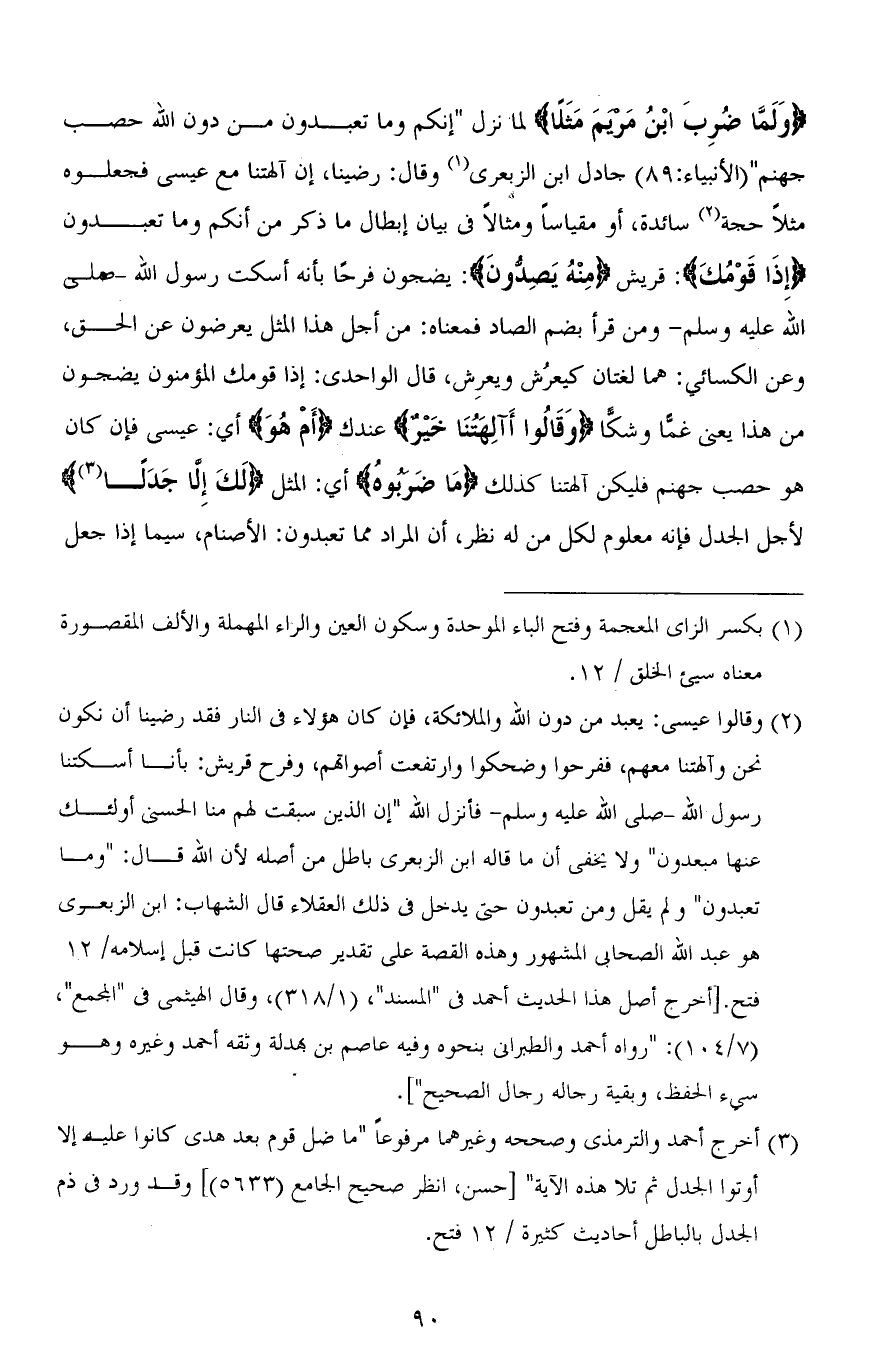 ﴿وَلَمَّا ضُرِبَ ابْنُ مَرْيَمَ مَثَلًا﴾ لما نزل "إنكم وما تعبدون من دون الله حصب
جهنم"(الأنبياء:٨٩) جادل ابن الزبعرى(١) وقال: رضينا، إن آلهتنا مع عيسى فجعلوه
مثلاً حجة(٢) سائدة، أو مقياساً ومثالاً فى بيان إبطال ما ذكر من أنكم وما تعبدون
﴿إِذَا قَوْمُكَ﴾: قريش ﴿مِنْهُ يَصِدُّونَ﴾: يضجون فرحًا بأنه أسكت رسول الله -صلى
الله عليه وسلم- ومن قرأ بضم الصاد فمعناه: من أجل هذا المثل يعرضون عن الحق،
وعن الكسائي: هما لغتان كيعرُش ويعرِش، قال الواحدى: إذا قومك المؤمنون يضجون
من هذا يعنى غمًّا وشكًّا ﴿وَقَالُوا أَآلِهَتُنَا خَيْرٌ﴾ عندك ﴿أَمْ هُوَ﴾ أي: عيسى فإن كان
هو حصب جهنم فليكن آلهتنا كذلك ﴿مَا ضَرَبُوهُ﴾ أي: المثل ﴿لَكَ إِلَّا جَدَلًا(٣)﴾
لأجل الجدل فإنه معلوم لكل من له نظر، أن المراد مما تعبدون: الأصنام، سيما إذا جعل
(١) بكسر الزاى المعجمة وفتح الباء الموحدة وسكون العين والراء المهملة والألف المقصورة
معناه سيئ الخلق / ١٢.
(٢) وقالوا عيسى: يعبد من دون الله والملائكة، فإن كان هؤلاء فى النار فقد رضينا أن نكون
نحن وآلهتنا معهم، ففرحوا وضحكوا وارتفعت أصواتهم، وفرح قريش: بأنا أسكتنا
رسول الله -صلى الله عليه وسلم- فأنزل الله "إن الذين سبقت لهم منا الحسنى أولئك
عنها مبعدون" ولا يخفى أن ما قاله ابن الزبعرى باطل من أصله لأن الله قال: "وما
تعبدون" ولم يقل ومن تعبدون حتى يدخل فى ذلك العقلاء قال الشهاب: ابن الزبعرى
هو عبد الله الصحابى المشهور وهذه القصة على تقدير صحتها كانت قبل إسلامه/ ١٢
فتح.[أخرج أصل هذا الحديث أحمد فى "المسند"، (٣١٨/١)، وقال الهيثمى فى "المجمع"،
(١٠٤/٧): "رواه أحمد والطبرانى بنحوه وفيه عاصم بن بهدلة وثقه أحمد وغيره وهو
سيء الحفظ، وبقية رجاله رجال الصحيح"].
(٣) أخرج أحمد والترمذى وصححه وغيرهما مرفوعاً "ما ضل قوم بعد هدى كانوا عليه إلا
أوتوا الجدل ثم تلا هذه الآية" [حسن، انظر صحيح الجامع (٥٦٣٣)] وقد ورد فى ذم
الجدل بالباطل أحاديث كثيرة / ١٢ فتح.
٩٠